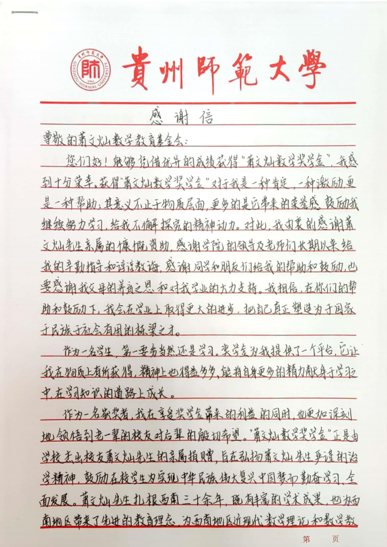 貴州師範大學
感谢信
尊敬的萧文灿数学教育基金会:
您们好!能够凭借优异的成绩获得“萧文灿数学奖学金”,我感
到十分荣幸。获得“萧文灿数学奖学金”对于我是一种肯定,一种激励,更
是一种帮助,其意义不止于物质层面,更多的是它带来的荣誉感,鼓励我
继续努力学习,给我不懈探究的精神动力。对此,我由衷的感谢萧
文灿先生亲属的慷慨资助,感谢学院的领导及老师们长期以来给
我的辛勤指导和谆谆教诲,感谢同学和朋友们给我的帮助和鼓励,也
要感谢我父母的养育之恩和对我学业的大力支持。我相信,在你们的帮
助和鼓励下,我会在学业上取得更大的进步,把自己真正塑造为于国家
于民族于社会有用的栋梁之才。
作为一名学生,第一要务当然还是学习,奖学金为我提供了一个平台,它让
我在物质上有所获得,精神上也得益多多,能有更多的精力献身于学习之
中,在学习知识的道路上成长。
作为一名获奖者,我在享受奖学金带来的利益的同时,也更加深刻
地领悟到老一辈的校友对后辈的殷切希望。“萧文灿数学奖学金”正是由
学校杰出校友萧文灿先生的亲属捐赠,旨在弘扬萧文灿先生严谨的治
学精神,鼓励在校学生为实现中华民族伟大复兴中国梦而勤奋学习,全
面发展。萧文灿先生扎根西南三十余年,既有丰富的学术成果,也为西
南地区带来了先进的教育理念,为西南地区近现代数学理论和数学教
第 页